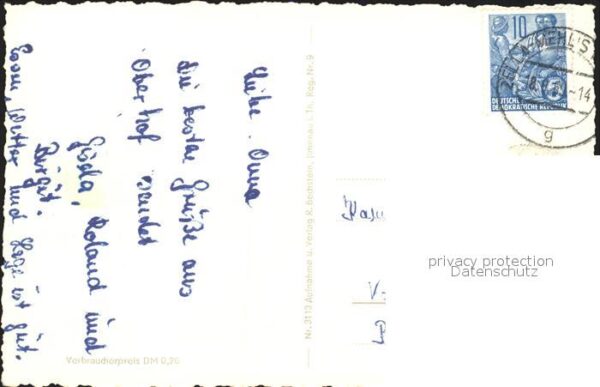 Liebe Oma
die besten Grüße aus
Oberhof sendet
Gisela, Roland und
Birgit.
Essen, Wetter und Lage ist gut.
Verbraucherpreis DM 0,20
Nr. 3110 Aufnahme u. Verlag R. Bechstein, Ilmenau i. Th. Reg. Nr. 9
10
DEUTSCHE
DEMOKRATISCHE REPUBLIK
ZELLA-MEHLIS
-14
g
privacy protection
Datenschutz